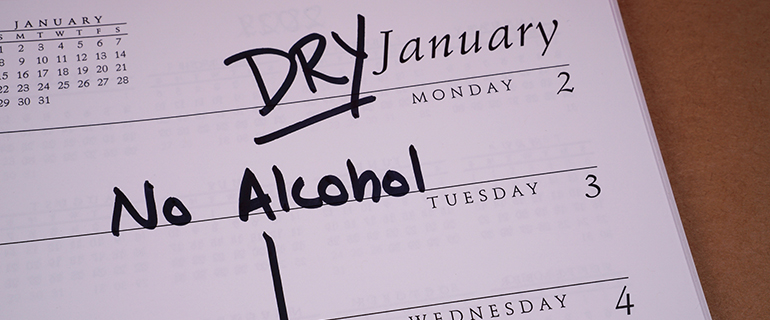 JANUARY
S M T W T F S
1 2 3 4 5 6 7
8 9 10 11 12 13 14
15 16 17 18 19 20 21
22 23 24 25 26 27 28
29 30 31
DRY January
MONDAY 2
No Alcohol
TUESDAY 3
WEDNESDAY 4